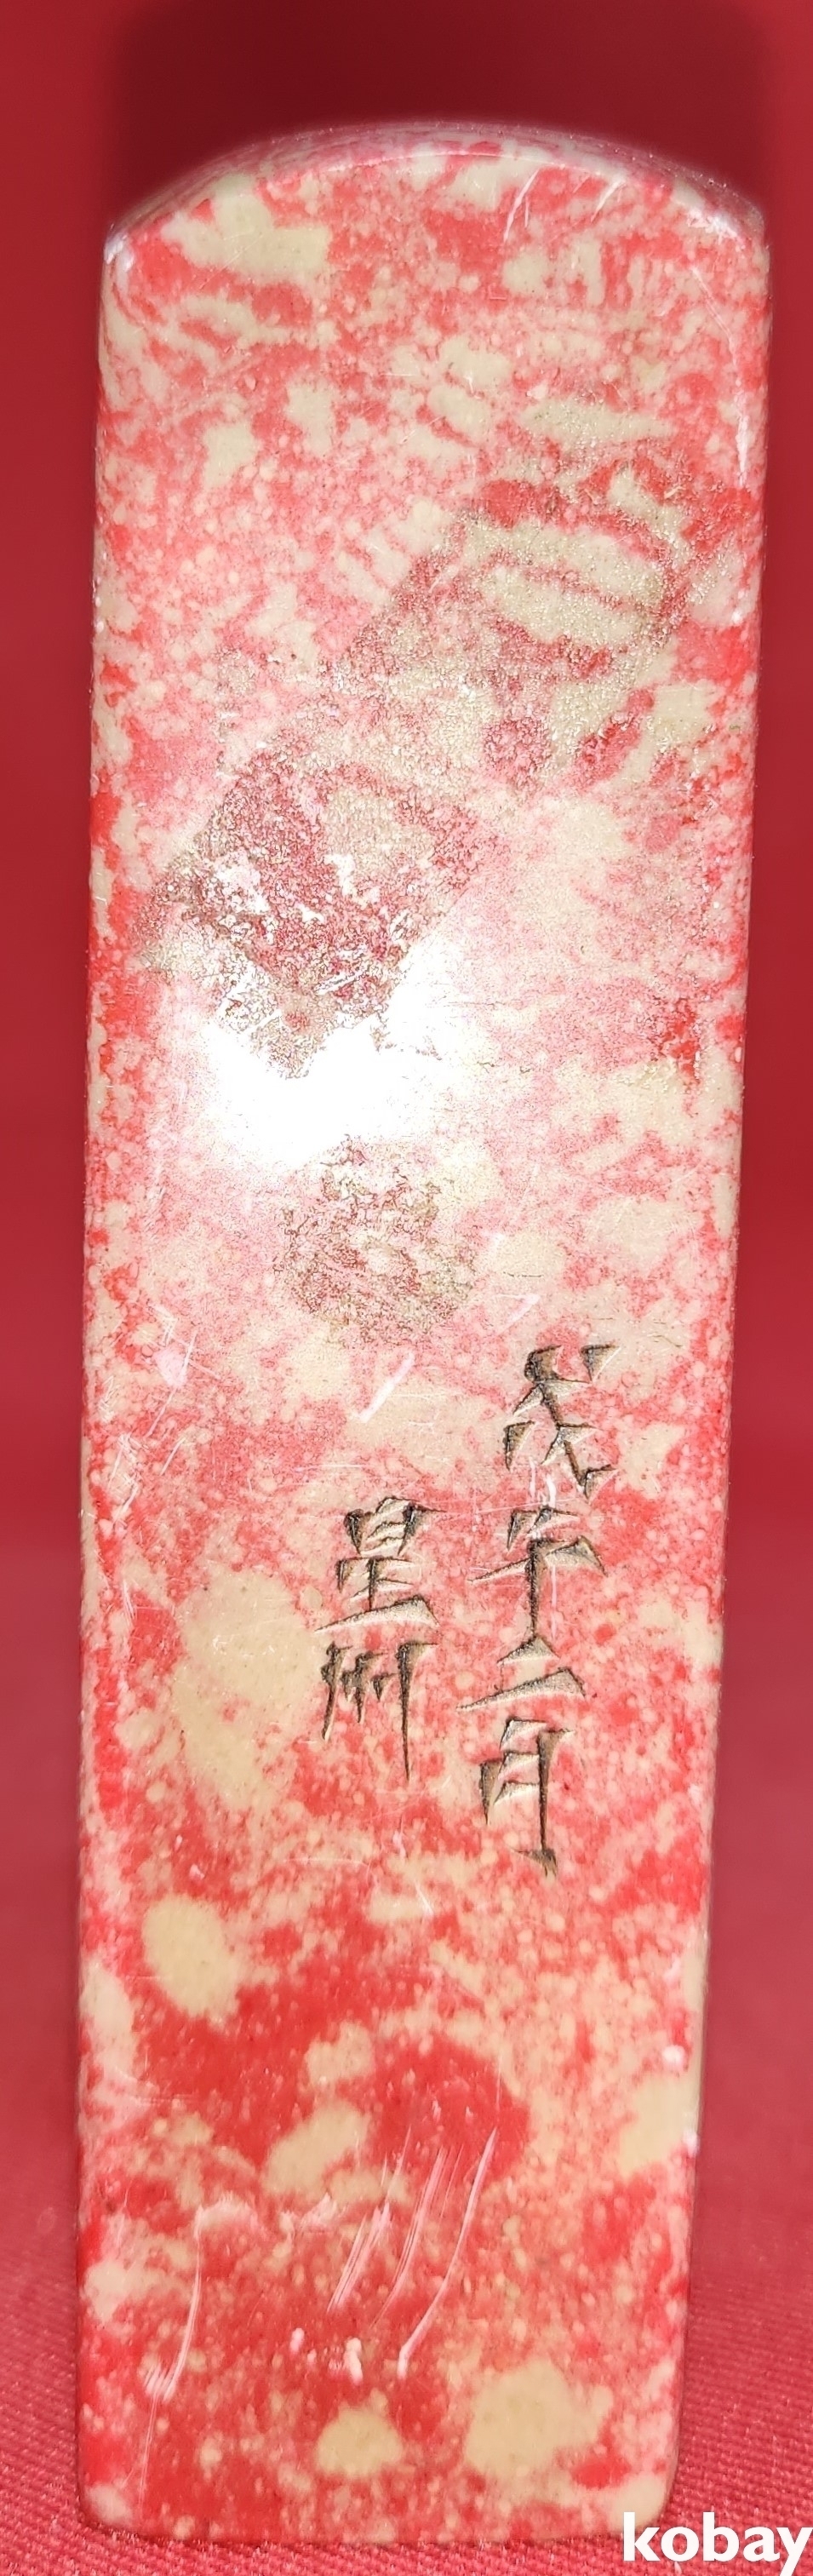 午二月
皇州
kobay